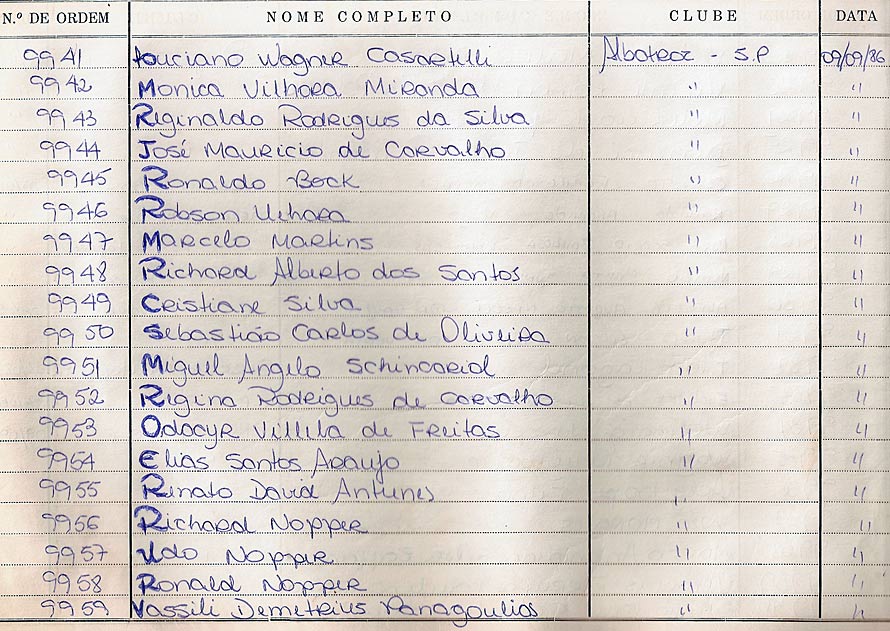 N.º DE ORDEM NOME COMPLETO CLUBE DATA
9941 Louciano Wagner Casartelli Albatroz - S.P 09/09/86
9942 Monica Vilhora Miranda " "
9943 Reginaldo Rodrigues da Silva " "
9944 José Mauricio de Carvalho " "
9945 Ronaldo Bock " "
9946 Robson Uehara " "
9947 Marcelo Martins " "
9948 Richard Alberto dos Santos " "
9949 Cristiane Silva " "
9950 Sebastião Carlos de Oliveira " "
9951 Miguel Angelo Schincariol " "
9952 Regina Rodrigues de Carvalho " "
9953 Odacyr Villela de Freitas " "
9954 Elias Santos Araujo " "
9955 Renato David Antunes " "
9956 Richard Nopper " "
9957 Udo Nopper " "
9958 Ronald Nopper " "
9959 Vassili Demetrius Panagoulias " "